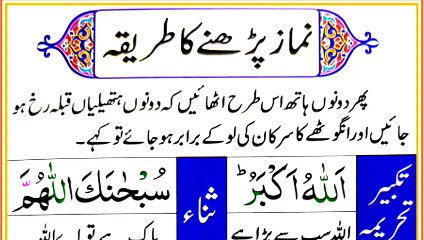 نماز پڑھنے کا طریقہ
پھر دونوں ہاتھ اس طرح اٹھائیں کہ دونوں ہتھیلیاں قبلہ رخ ہو
جائیں اور انگوٹھے کا سر کان کی لو کے برابر ہو جائے تو کہے۔
تکبیر تحریمہ
اَللهُ اَكْبَرُ ؕ
اللہ سب سے بڑا ہے
ثناء
سُبْحٰنَكَ اللّٰهُمَّ
پاک ہے تو اے اللہ